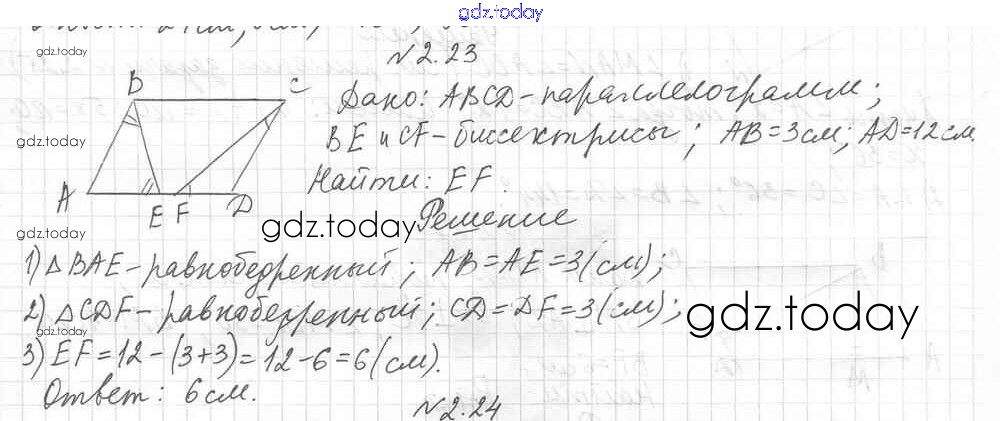 gdz.today
gdz.today
№2.23
B C
Дано: ABCD-параллелограмм;
gdz.today
BE и CF-биссектрисы; AB=3см; AD=12см.
Найти: EF.
A E F D
gdz.today
gdz.today
Решение
1) △BAE-равнобедренный; AB=AE=3(см);
2) △CDF-равнобедренный; CD=DF=3(см);
gdz.today
gdz.today
3) EF=12-(3+3)=12-6=6(см).
Ответ: 6см.
№2.24